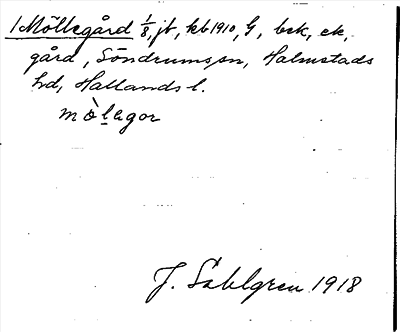 1 Möllegård 1/8, jb, kb 1910, G, bck, ek,
gård, Söndrums sn, Halmstads
hd, Hallands l.
mòlagor
J. Sahlgren 1918